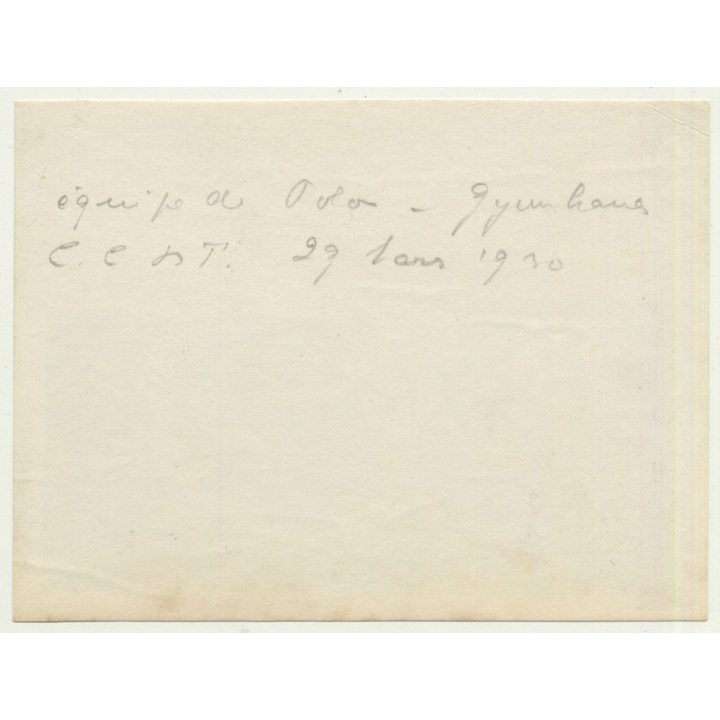 équipe de Polo - Gymkhana
C. C. DT. 29 Mars 1930